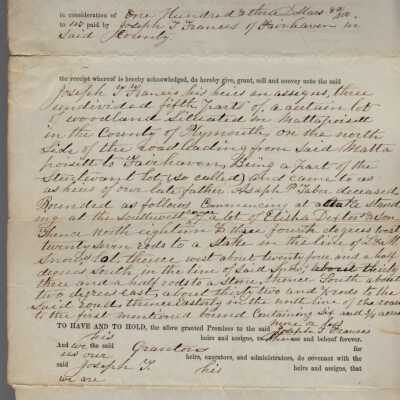 in consideration of One Hundred & three Dollars &
to us paid by Joseph T Frances of Fairhaven in
Said County.
the receipt whereof is hereby acknowledged, do hereby give, grant, sell and convey unto the said
Joseph T Frances his heirs an assigns, three
undivided fifth parts of a certain lot
of woodland Situated in Mattapoisett
in the County of Plymouth, on the north
Side of the Road leading from Said Matta
poisett to Fairhaven, Being a part of the
Sturtevant Lot (so called) and came to us
as heirs of our late father Aseph P Taber deceased
Bounded as follows Commencing at a Stake Stand
ing at the Southwest corner of a lot of Elisha Dexter & Son
Thence North eighteen & three fourth degrees East
twenty seven rods to a Stake in the line of
lot, thence west about twenty four and a half
degrees South, in the line of Said about thirty
three and a half rods to a Stone thence South about
two degrees East, about thirty two and rods to the
Said road thence Easterly in the north line of the road
to the first mentioned bound Containing Six and acres
more or less
TO HAVE AND TO HOLD, the afore granted Premises to the said Joseph T Frances
his heirs and assigns, to his use and behoof forever.
And we the said Grantors for
us our heirs, executors, and administrators, do covenant with the
said Joseph T. his heirs and assigns, that
we are